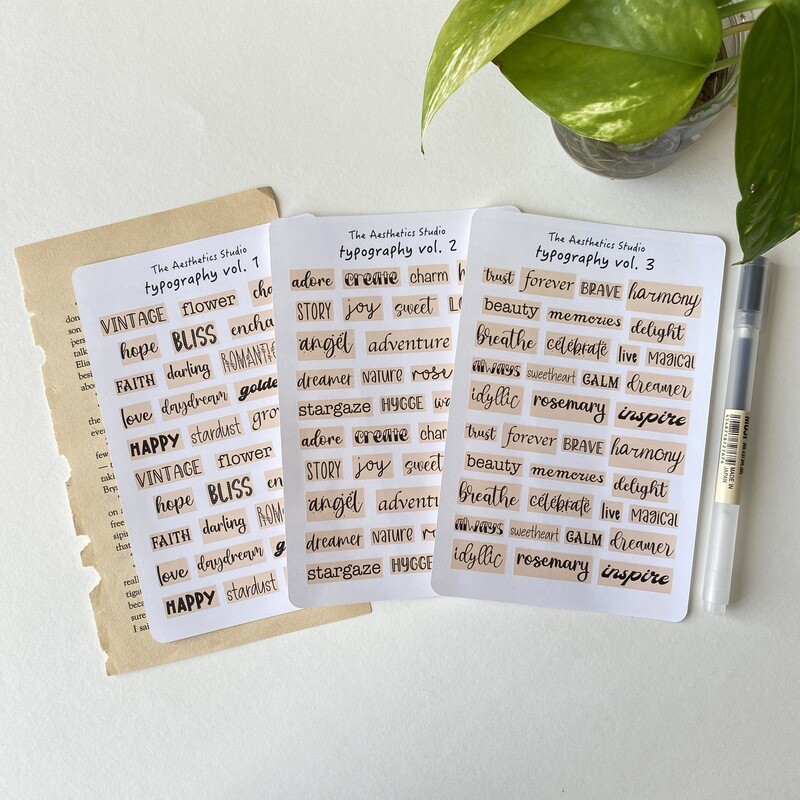 The Aesthetics Studio
typography vol. 1
VINTAGE flower
hope BLISS
FAITH darling ROMANTIC
love daydream
HAPPY stardust
VINTAGE flower
hope BLISS
FAITH darling
love daydream
HAPPY stardust
The Aesthetics Studio
typography vol. 2
adore create charm
STORY joy sweet
angel adventure
dreamer NATURE
stargaze HYGGE
adore create
STORY joy sweet
angel
dreamer NATURE
stargaze HYGGE
The Aesthetics Studio
typography vol. 3
trust forever BRAVE harmony
beauty memories delight
breathe celebrate live MAGICAL
always sweetheart CALM dreamer
idyllic rosemary inspire
trust forever BRAVE harmony
beauty memories delight
breathe celebrate live MAGICAL
always sweetheart CALM dreamer
idyllic rosemary inspire
MADE IN
JAPAN